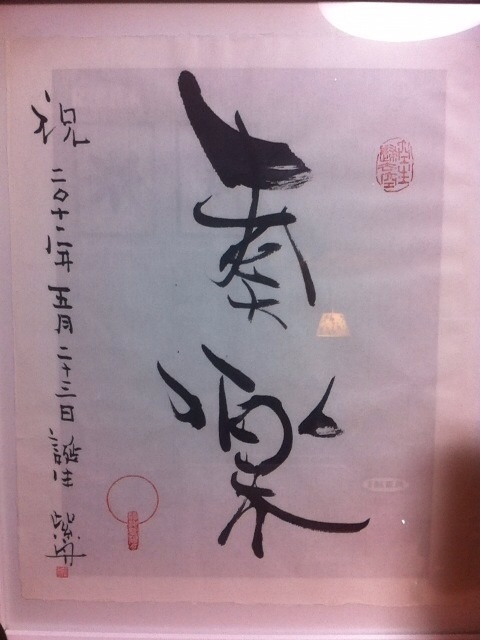 奏楽
祝
二〇十二年 五月二十三日 誕生 紫舟